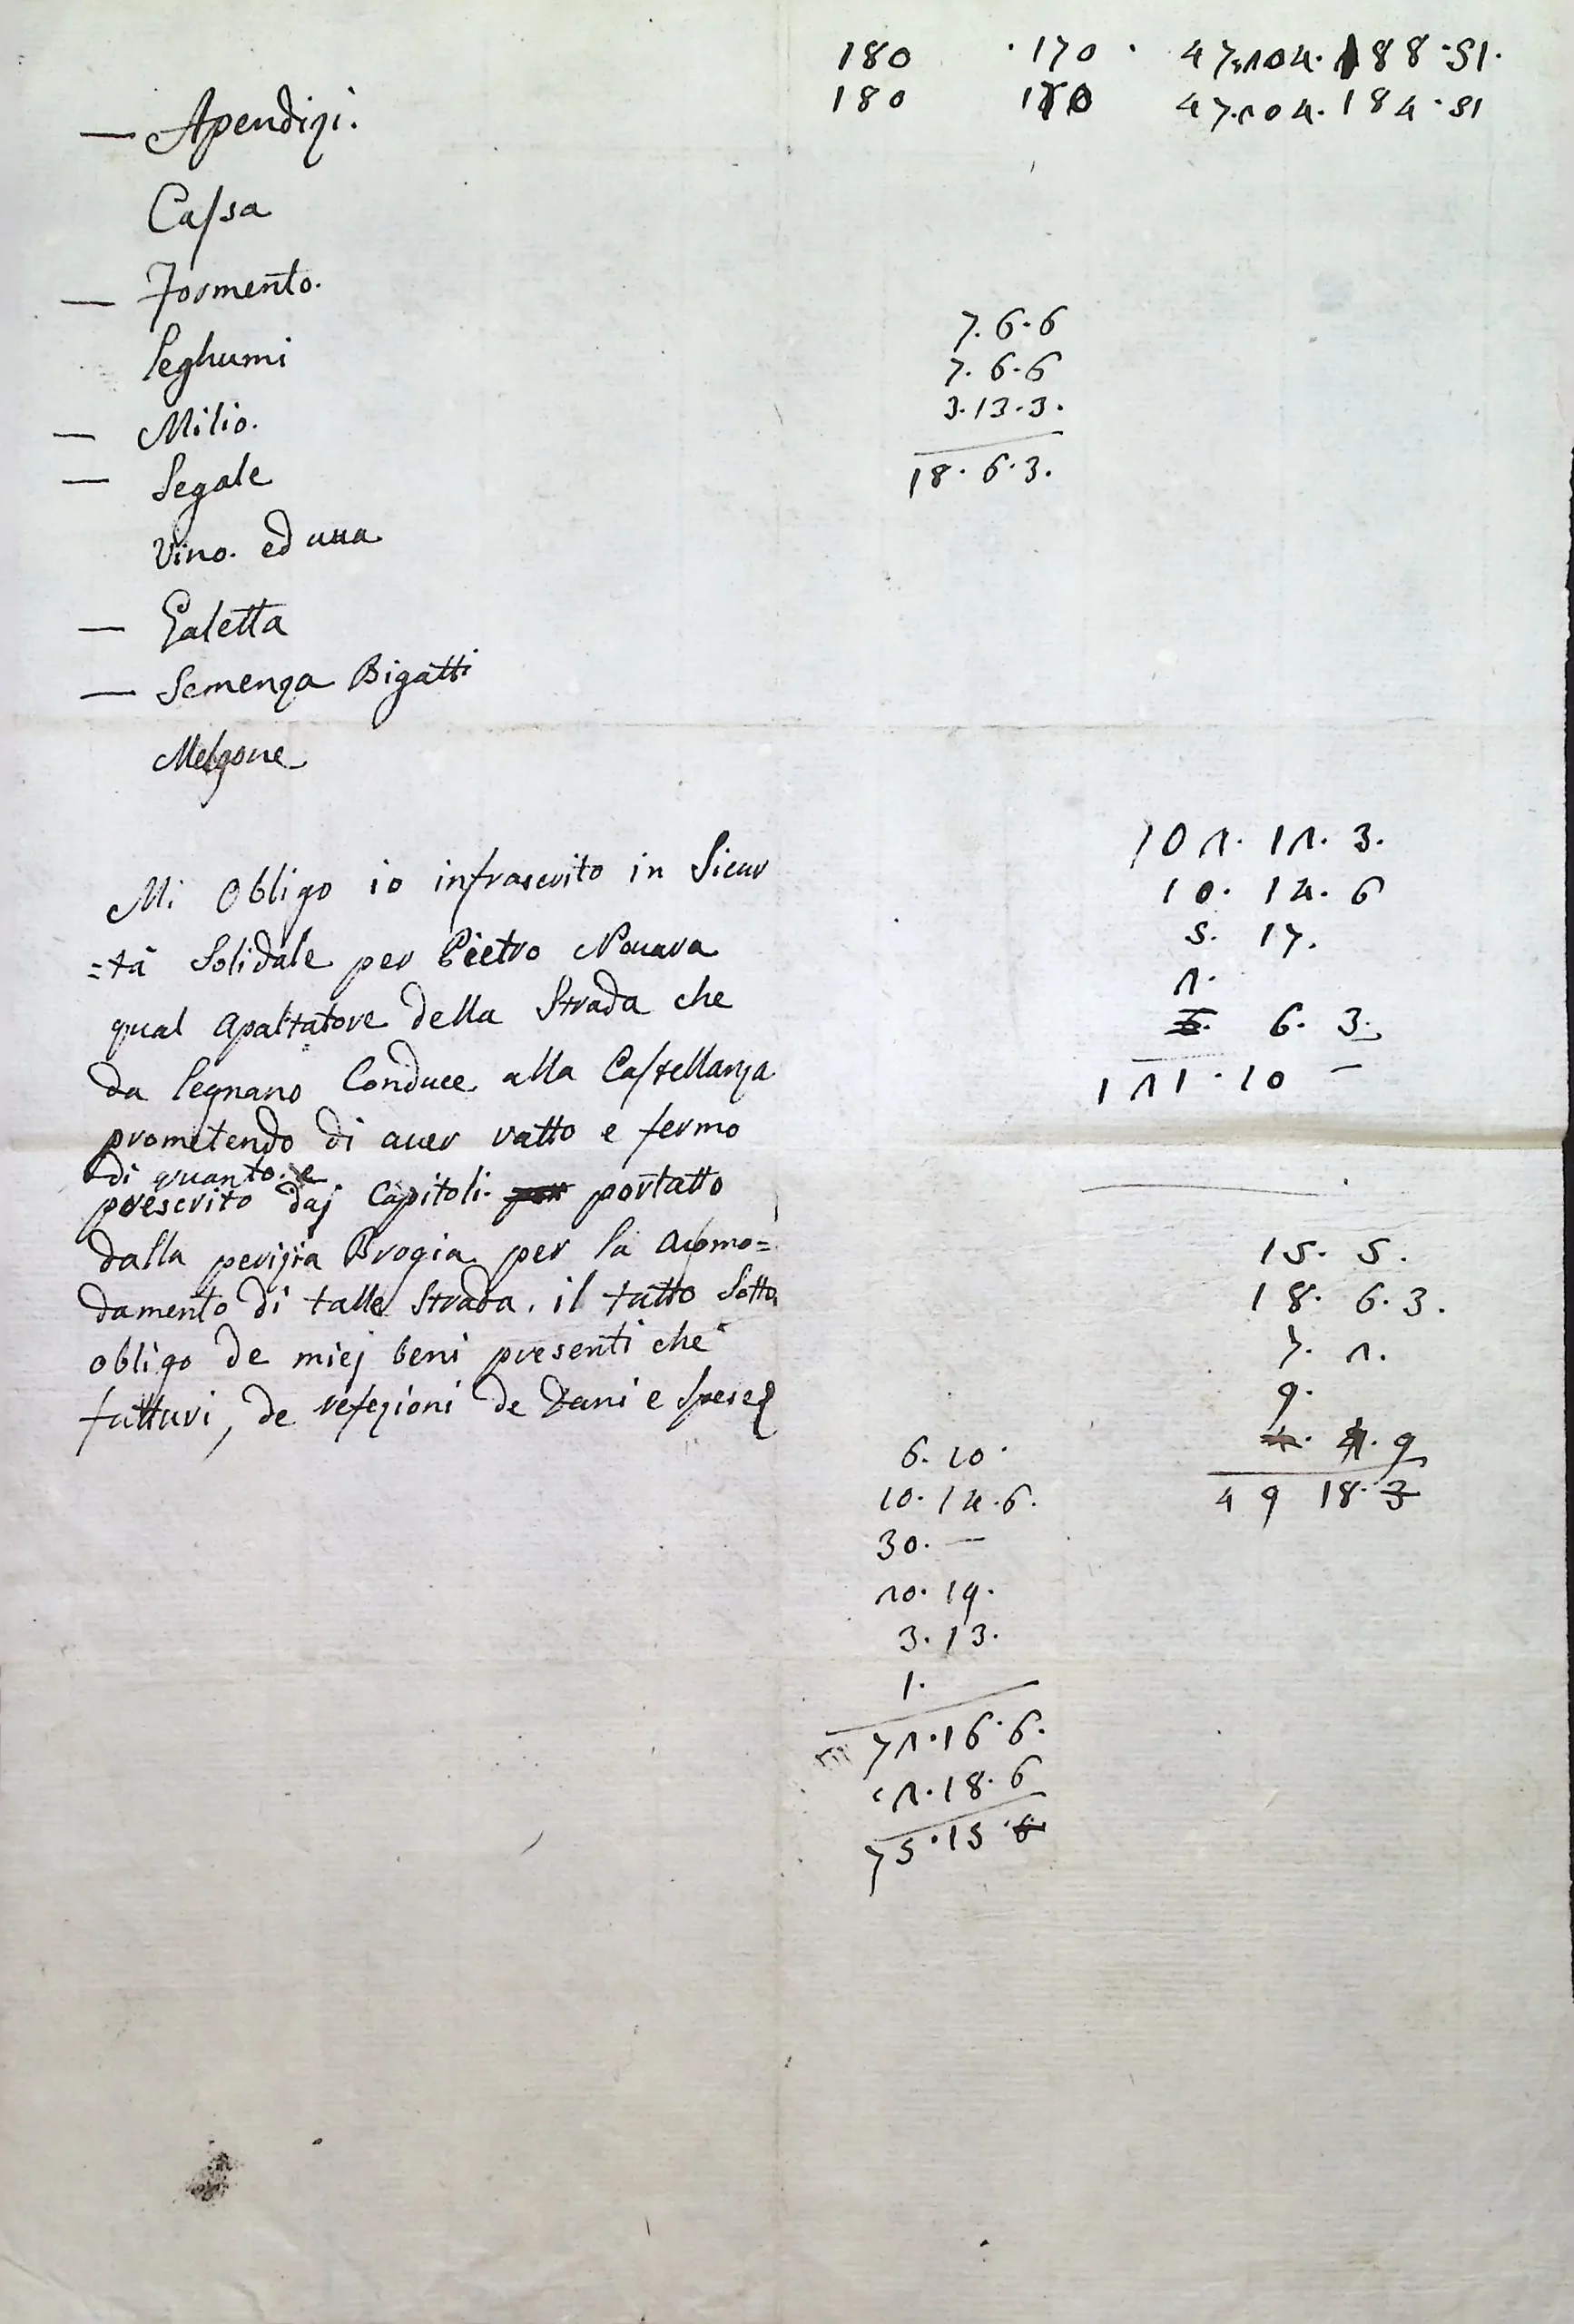 180 · 170 · 47.104. 188 · 51.
180 170 47.104. 184 · 51
— Apendizi.
Cassa
— Formento.
Leghumi
— Milio.
— Segale
Vino. ed uua
— Galetta
— Semenza Bigatti
Melgone
7. 6. 6
7. 6. 6
3. 13. 3.
18. 6. 3.
Mi Obligo io infrascrito in Sicur
=tà Solidale per Pietro Nouara
qual apaltatore della Strada che
da Legnano Conduce alla Castellanza
prometendo di auer ratto e fermo
di quanto. e
prescrito daj Capitoli. portatto
dalla perizia Brogia per la acomo=
damento di talle Strada. il tutto Sotto
obligo de miej beni presenti che
futturi, de refezioni de Dani e Spese
101. 11. 3.
10. 14. 6
5. 17.
1.
6. 3.
111. 10 —
15. 5.
18. 6. 3.
7. 1.
9.
4. 9
49 18. 3
6. 10.
10. 14. 6.
30. —
10. 19.
3. 13.
1.
71. 16. 6.
1. 18. 6
75. 15 6